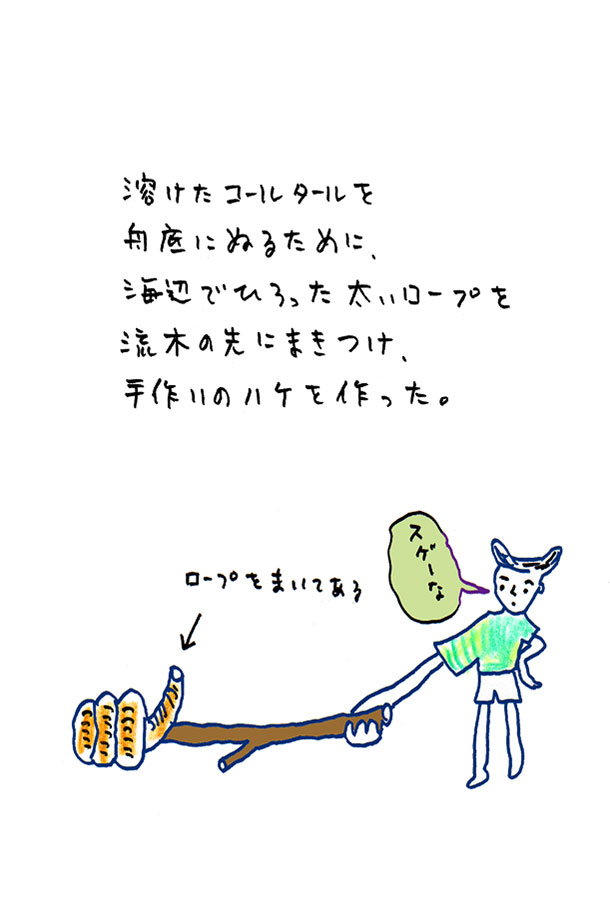 溶けたコールタールを
舟底にぬるために、
海辺でひろった太いロープを
流木の先にまきつけ、
手作りのハケを作った。
スゲーな
ロープをまいてある